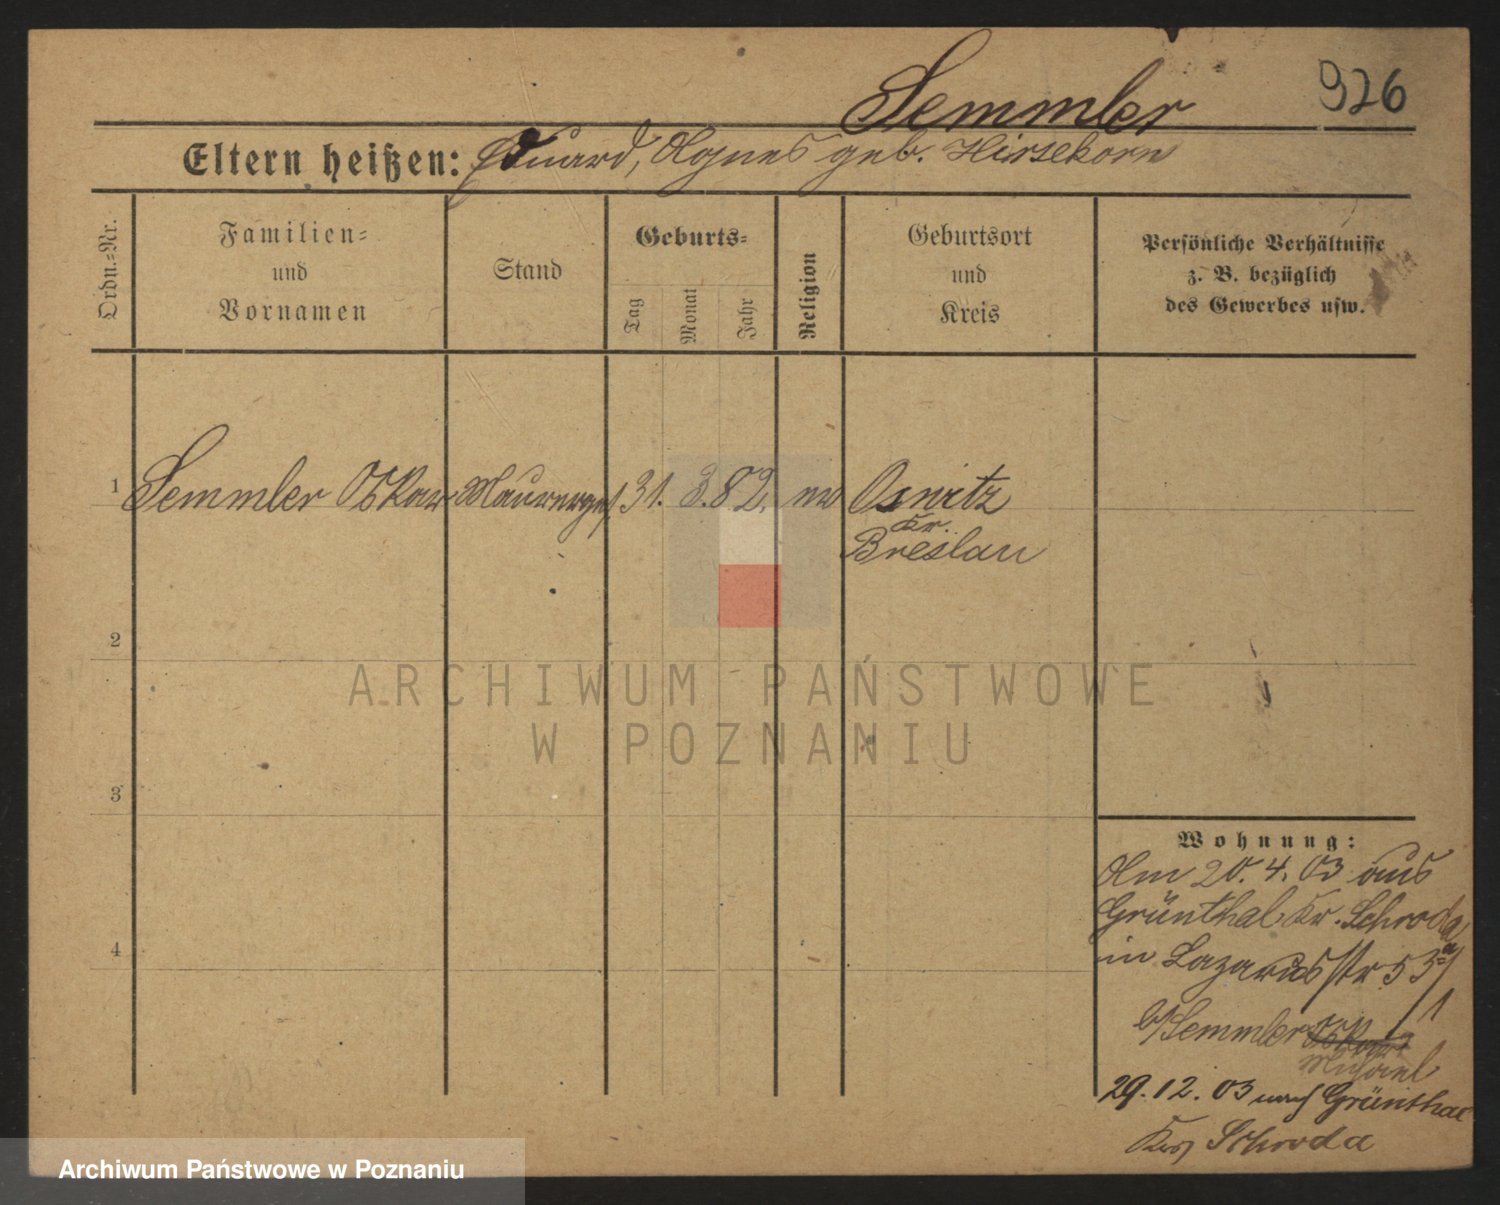 926
Semmler
Eltern heißen: Eduard, Agnes geb. Hirsekorn
Ordn.-Nr.
Familien-
und
Vornamen
Stand
Geburts-
Tag
Monat
Jahr
Religion
Geburtsort
und
Kreis
Persönliche Verhältnisse
z. B. bezüglich
des Gewerbes usw.
1 Semmler Oskar Maurerges. 31. 3. 82. ev Oswitz
Kr.
Breslau
2
3
4
ARCHIWUM PAŃSTWOWE
W POZNANIU
Wohnung:
Am 20.4.03 aus
Grünthal Kr. Schroda
in Lazarusstr 53a/
1
b/Semmler Oskar
Michael
29.12.03 nach Grünthal
Krs Schroda
Archiwum Państwowe w Poznaniu